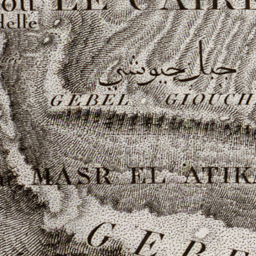 LE CAIRE
جبل جيوشي
GEBEL GIOUCH
MASR EL ATIK
GEBE